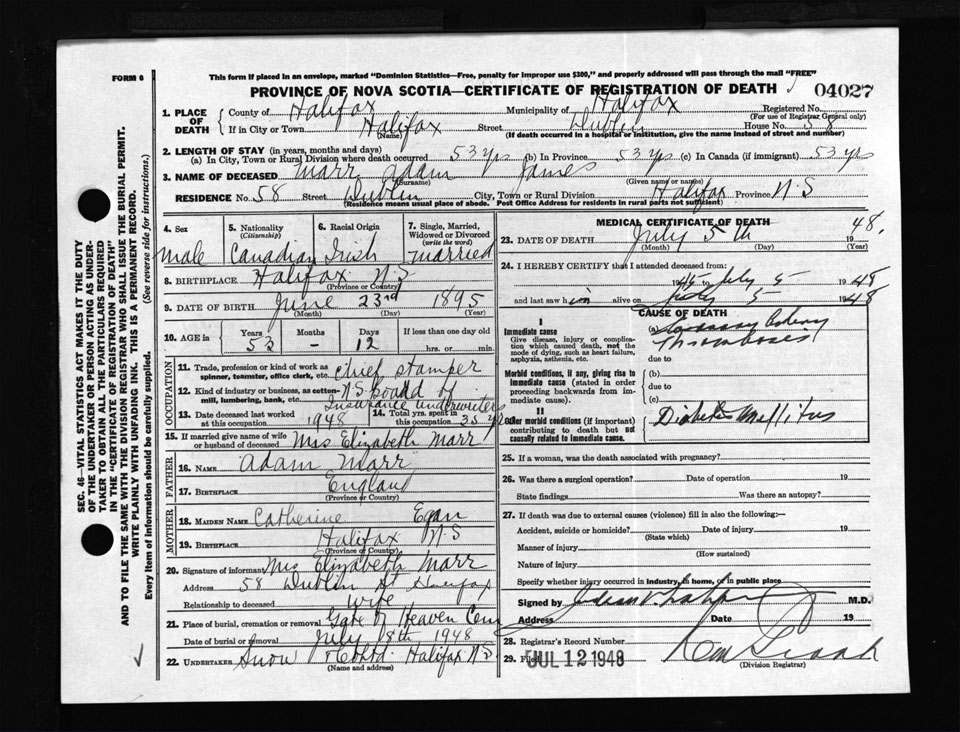 FORM 6
This form if placed in an envelope, marked "Dominion Statistics—Free, penalty for improper use $300," and properly addressed will pass through the mail "FREE"
PROVINCE OF NOVA SCOTIA—CERTIFICATE OF REGISTRATION OF DEATH
04027
1. PLACE OF DEATH
County of Halifax Municipality of Halifax Registered No.
(For use of Registrar General only)
If in City or Town Halifax Street Dublin House No. 58
(Name) (If death occurred in a hospital or institution, give the name instead of street and number)
2. LENGTH OF STAY (in years, months and days)
(a) In City, Town or Rural Division where death occurred 53 yrs (b) In Province 53 yrs (c) In Canada (if immigrant) 53 yrs
3. NAME OF DECEASED Marr Adam James
(Surname) (Given name or names)
RESIDENCE No. 58 Street Dublin City, Town or Rural Division Halifax Province N.S
(Residence means usual place of abode. Post Office Address for residents in rural parts not sufficient)
4. Sex Male
5. Nationality (Citizenship) Canadian
6. Racial Origin Irish
7. Single, Married, Widowed or Divorced (write the word) Married
8. BIRTHPLACE Halifax N.S
(Province or Country)
9. DATE OF BIRTH June 23rd 1895
(Month) (Day) (Year)
10. AGE in Years 53 Months - Days 12 If less than one day old
hrs. or min.
OCCUPATION
11. Trade, profession or kind of work as spinner, teamster, office clerk, etc. Chief Stamper
12. Kind of industry or business, as cotton-mill, lumbering, bank, etc. N.S Board of Insurance Underwriters
13. Date deceased last worked at this occupation 1948
14. Total yrs. spent in this occupation 35 yrs
15. If married give name of wife or husband of deceased Mrs Elizabeth Marr
FATHER
16. NAME Adam Marr
17. BIRTHPLACE England
(Province or Country)
MOTHER
18. MAIDEN NAME Catherine Egan
19. BIRTHPLACE Halifax N.S
(Province or Country)
20. Signature of informant Mrs Elizabeth Marr
Address 58 Dublin St Halifax
Relationship to deceased wife
21. Place of burial, cremation or removal Gate of Heaven Cem
Date of burial or removal July 8th 1948
22. UNDERTAKER Snow & Co Ltd. Halifax N.S.
(Name and address)
MEDICAL CERTIFICATE OF DEATH
23. DATE OF DEATH July 5th 1948.
(Month) (Day) (Year)
24. I HEREBY CERTIFY that I attended deceased from:
1945 to July 5 1948
and last saw him alive on July 5 1948
CAUSE OF DEATH
I
Immediate cause
Give disease, injury or complication which caused death, not the mode of dying, such as heart failure, asphyxia, asthenia, etc.
(a) Coronary Artery Thrombosis
due to
Morbid conditions, if any, giving rise to immediate cause (stated in order proceeding backwards from immediate cause).
(b)
due to
(c)
II
Other morbid conditions (if important) contributing to death but not causally related to immediate cause.
Diabetes Mellitus
25. If a woman, was the death associated with pregnancy?
26. Was there a surgical operation? Date of operation 19
State findings Was there an autopsy?
27. If death was due to external causes (violence) fill in also the following:—
Accident, suicide or homicide? Date of injury 19
(State which)
Manner of injury
(How sustained)
Nature of injury
Specify whether injury occurred in industry, in home, or in public place
Signed by M.D.
Address Date 19
28. Registrar's Record Number
29. Filed JUL 12 1948
(Division Registrar)
SEC. 46—VITAL STATISTICS ACT MAKES IT THE DUTY
OF THE UNDERTAKER OR PERSON ACTING AS UNDER-
TAKER TO OBTAIN ALL THE PARTICULARS REQUIRED
IN THE "CERTIFICATE OF REGISTRATION OF DEATH"
AND TO FILE THE SAME WITH THE DIVISION REGISTRAR WHO SHALL ISSUE THE BURIAL PERMIT.
WRITE PLAINLY WITH UNFADING INK. THIS IS A PERMANENT RECORD.
Every item of information should be carefully supplied. (See reverse side for instructions.)